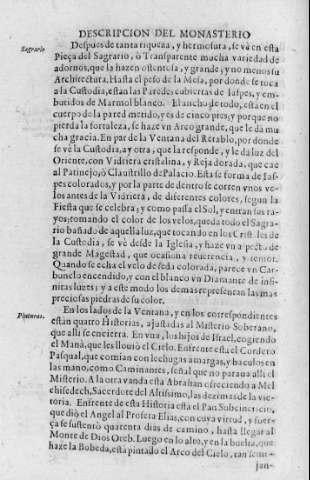 DESCRIPCION DEL MONASTERIO
Sagrario
Despues de tanta riqueza, y hermosura, se vè en esta
Pieça del Sagrario, ò Transparente mucha variedad de
adornos, que la hazen ostentosa, y grande; y no menos su
Architectura. Hasta el peso de la Mesa, por donde se toca
a la Custodia, estàn las Paredes cubiertas de Iaspes, y em-
butidos de Marmol blanco. El ancho de todo, està en el
cuerpo de la pared metido, y es de cinco pies; y porque no
pierda la fortaleza, se haze vn Arco grande, que le dà mu
cha gracia. En par de la Ventana del Retablo, por donde
se vè la Custodia, ay otra, que la responde, y le dà luz del
Oriente, con Vidriera cristalina, y Reja dorada, que cae
al Patinejo, ò Claustrillo de Palacio. Esta se forma de Jas-
pes colorados, y por la parte de dentro se corren vnos ve-
los antes de la Vidriera, de diferentes colores, segun la
Fiesta que se celebra; y como passa el Sol, y entran sus ra-
yos, tomando el color de los velos, queda todo el Sagra-
rio bañado de aquella luz, que tocando en los Cristales de
la Custodia, se vè desde la Iglesia, y haze vn aspecto de
grande Magestad, que ocasiona reuerencia, y temor.
Quando se echa el velo de seda colorada, parece vn Car-
bunclo encendido, y con el blanco vn Diamante de infi-
nitas luzes; y a este modo los demas representan las mas
preciosas piedras de su color.
Pinturas.
En los lados de la Ventana, y en los correspondientes
estàn quatro Historias, ajustadas al Misterio Soberano,
que alli se encierra. En vna, los hijos de Israel, cogiendo
el Manà, que les llouiò el Cielo. Enfrente està el Cordero
Pasqual, que comian con lechugas amargas, y baculos en
las mano, como Caminantes, señal que no paraua alli el
Misterio. A la otra vanda està Abrahan ofreciendo a Mel
chisedech, Sacerdote del Altissimo, las dezimas de la vic-
toria. Enfrente de esta Historia està el Pan Subcinericio,
que diò el Angel al Profeta Elias, con cuya virtud, y fuer-
ça se sustentò quarenta dias de camino, hasta llegar al
Monte de Dios Oreb. Luego en lo alto, y en la buelta, que
haze la Bobeda, està pintado el Arco del Cielo, tan seme-
jan-